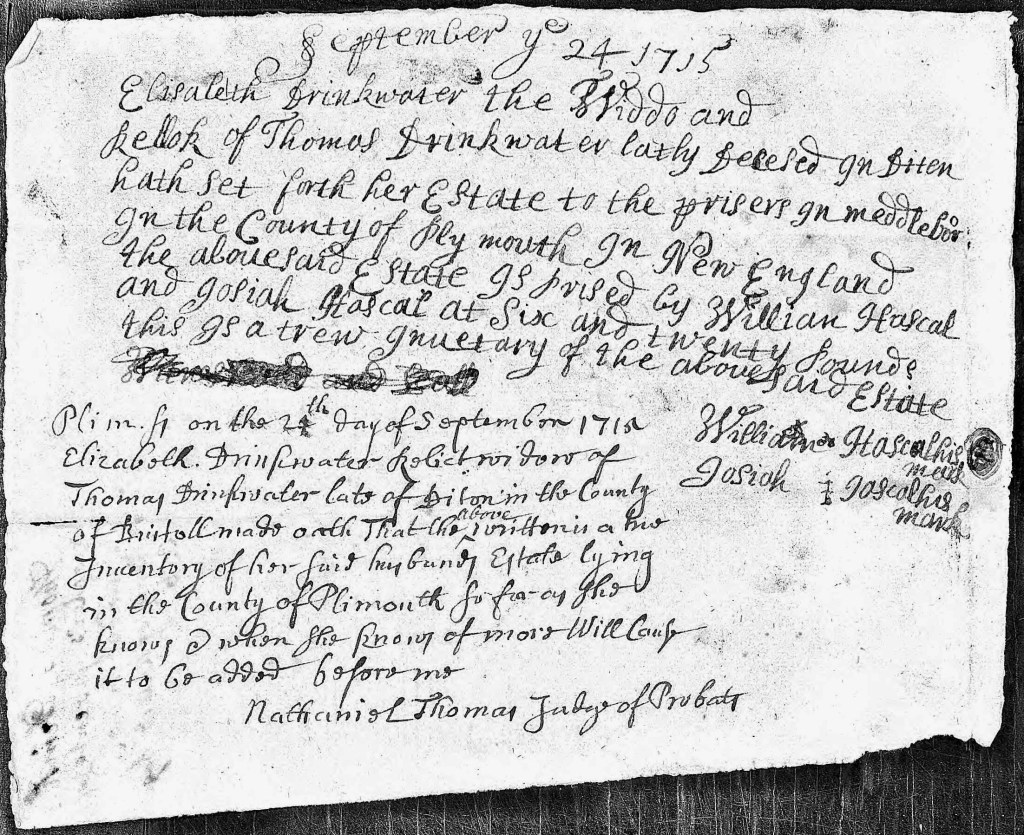 September ye 24 1715
Elisabeth Drinkwater the Widdo and
Rellok of Thomas Drinkwater latly Desesed In Diten
hath set forth her Estate to the prisers In meddlebor:
In the County of Plymouth In New England
the abovesaid Estate Is prised by Willian Hascal
and Josiah Hascal at Six and twenty pounds
this Is a trew Inuetary of the abovesaid Estate
William Hascal his
mark
Josiah Hascal his
mark
Plim. ss on the 24th day of September 1715
Elizabeth Drinkwater Relict widow of
Thomas Drinkwater late of Diton in the County
of Bristoll made oath That the above written is a true
Inventory of her said husbands Estate lying
in the County of Plimouth so far as she
knows & when she knows of more Will Cause
it to be added before me
Nathaniel Thomas Judge of Probats